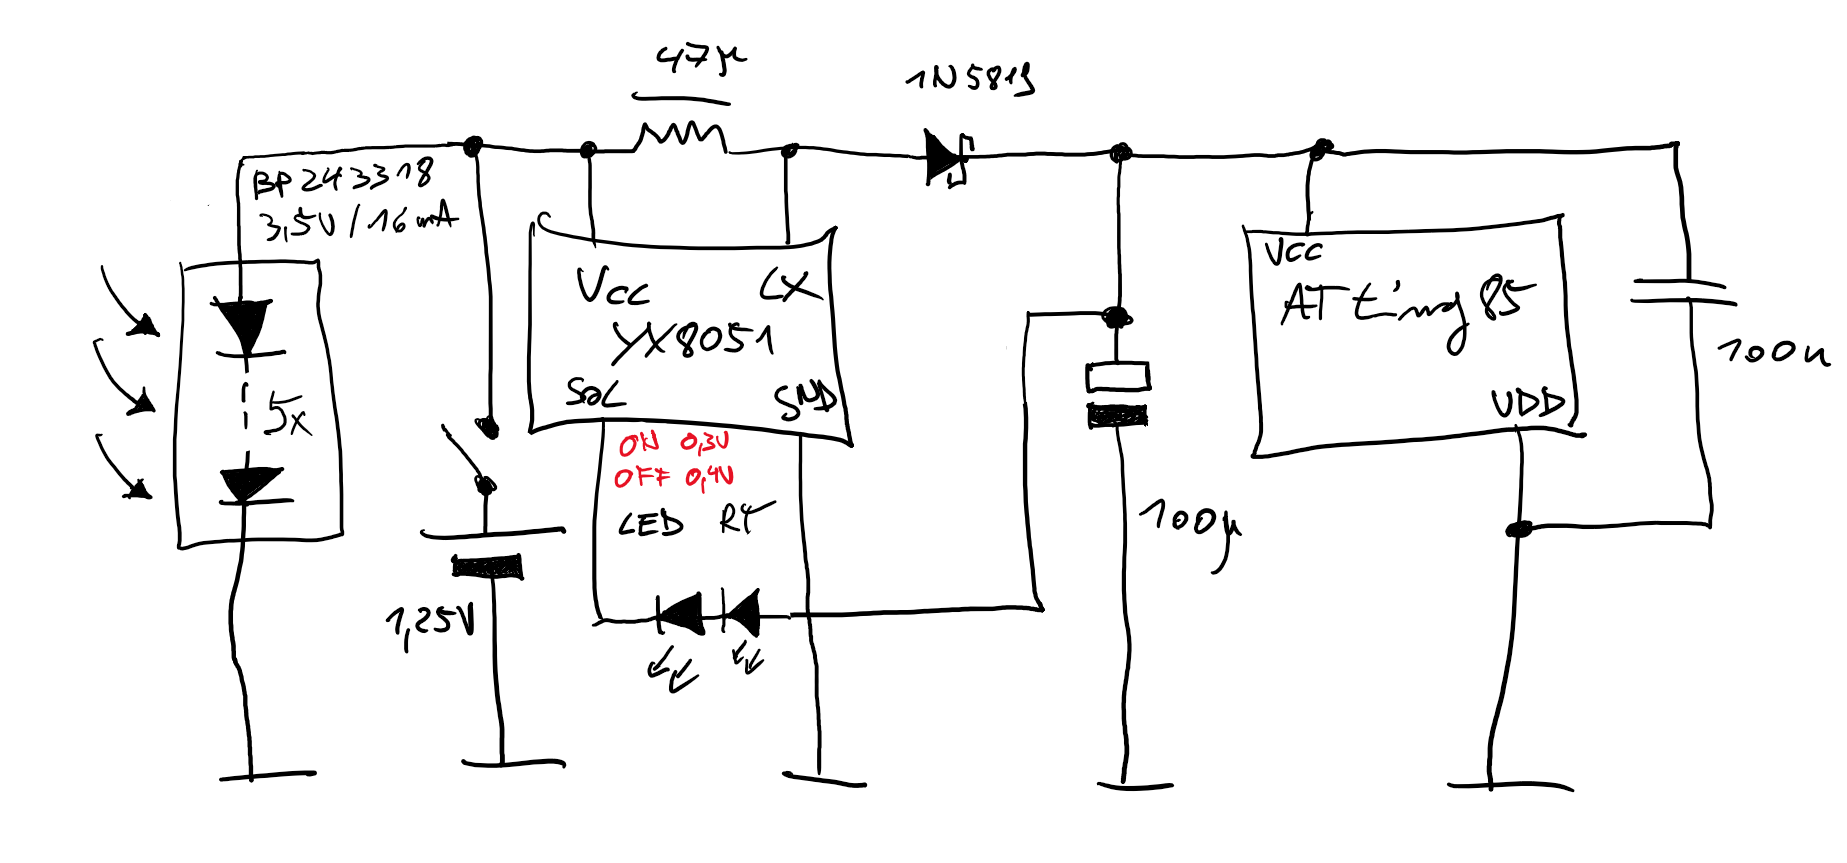 47µ
1N5819
BP243318
3,5V / 16mA
VCC LX
YX8051
SOL GND
ON 0,3V
OFF 0,4V
LED RT
5x
1,25V
100µ
VCC
ATtiny85
VDD
100n